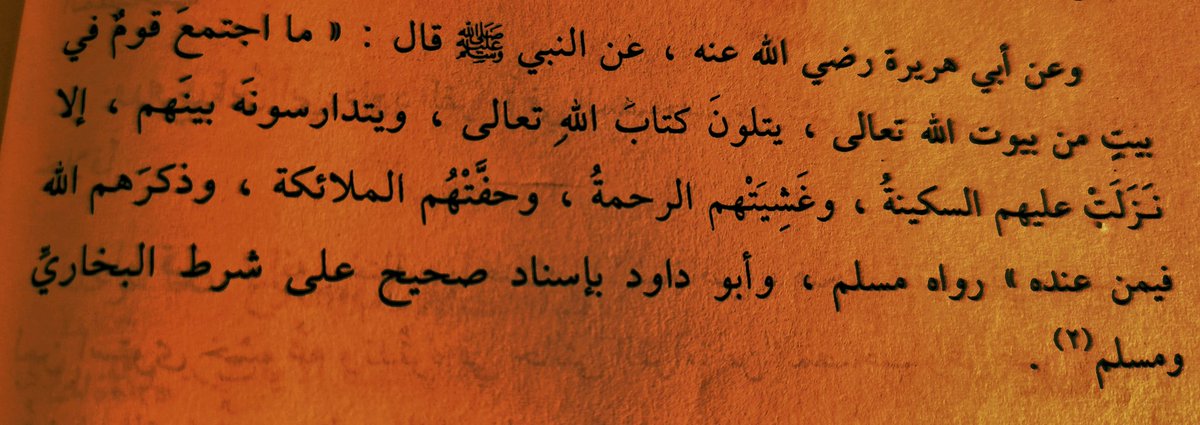 وعن أبي هريرة رضي الله عنه ، عن النبي ﷺ قال : « ما اجتمعَ قومٌ في
بيتٍ من بيوت الله تعالى ، يتلونَ كتابَ اللهِ تعالى ، ويتدارسونَه بينَهم ، إلا
نَزَلَتْ عليهم السكينةُ ، وغَشِيَتْهم الرحمةُ ، وحفَّتْهُم الملائكة ، وذكرَهم الله
فيمن عنده » رواه مسلم ، وأبو داود بإسناد صحيح على شرط البخاريِّ
ومسلم(٢) .